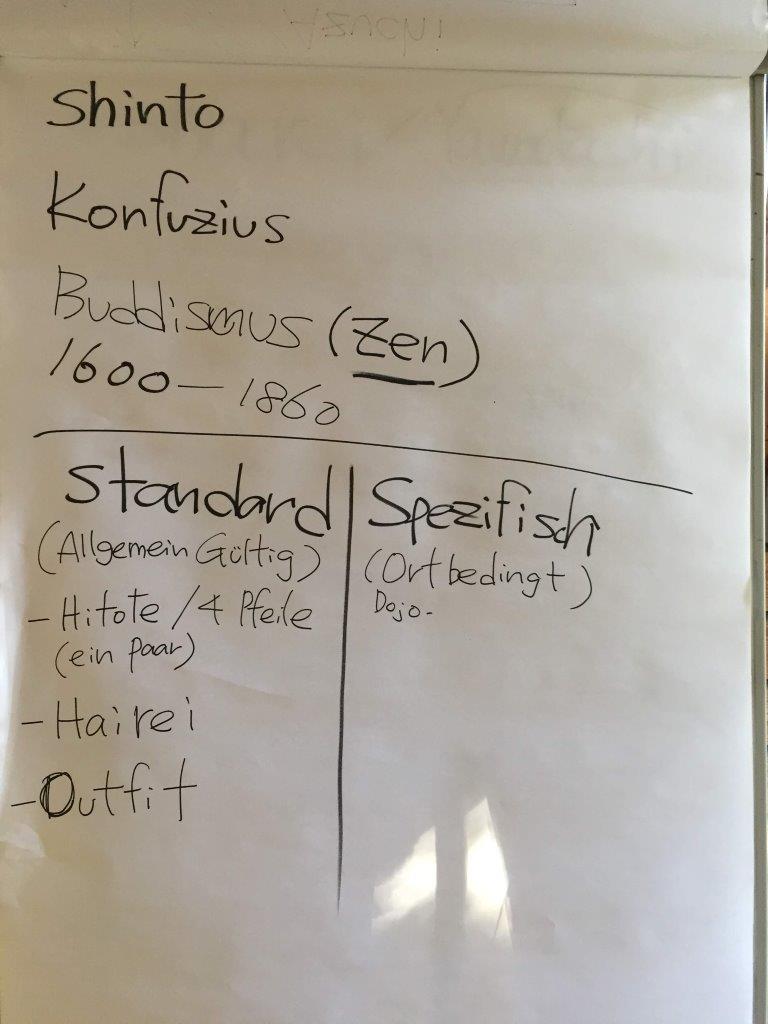 Shinto
Konfuzius
Buddismus (Zen)
1600 – 1860
Standard
(Allgemein Gültig)
- Hitote / 4 Pfeile
(ein Paar)
- Hairei
- Outfit
Spezifisch
(Ortbedingt)
Dojo-